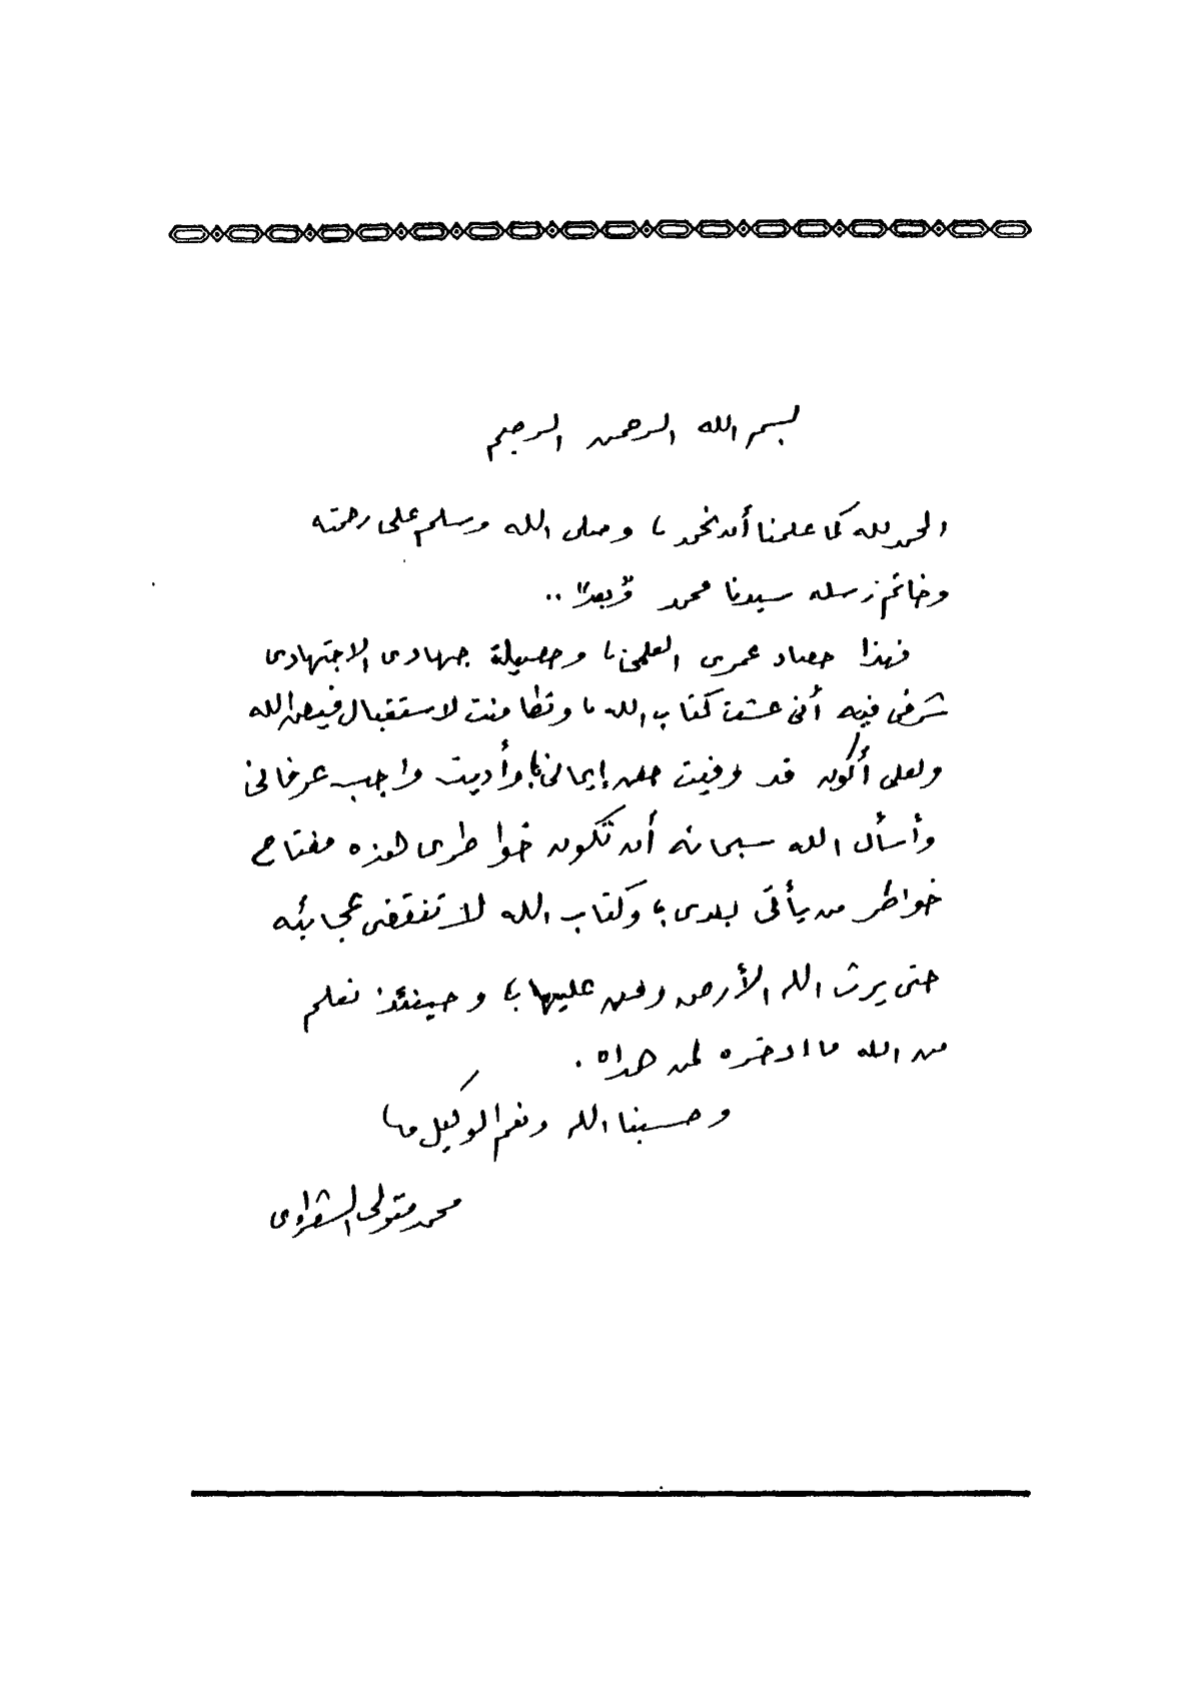 بسم الله الرحمن الرحيم
الحمد لله كما علمنا أن نحمد، وصلى الله وسلم على رحمته
وخاتم رسله سيدنا محمد "وبعد" ..
فهذا حصاد عمرى العلمى، وحصيلة جهادى الاجتهادى
شرفى فيه أنى عشت كتاب الله، وتطامنت لاستقبال فيض الله
ولعلى أكون قد وفيت حق إيمانى، وأديت واجب عرفانى
وأسأل الله سبحانه أن تكون خواطرى هذه مفتاح
خواطر من يأتى بعدى، وكتاب الله لا تنقضى عجائبه
حتى يرث الله الأرض ومن عليها، وحينئذ نعلم
من الله ما ادخره لمن هداه .
وحسبنا الله ونعم الوكيل
محمد متولى الشعراوى